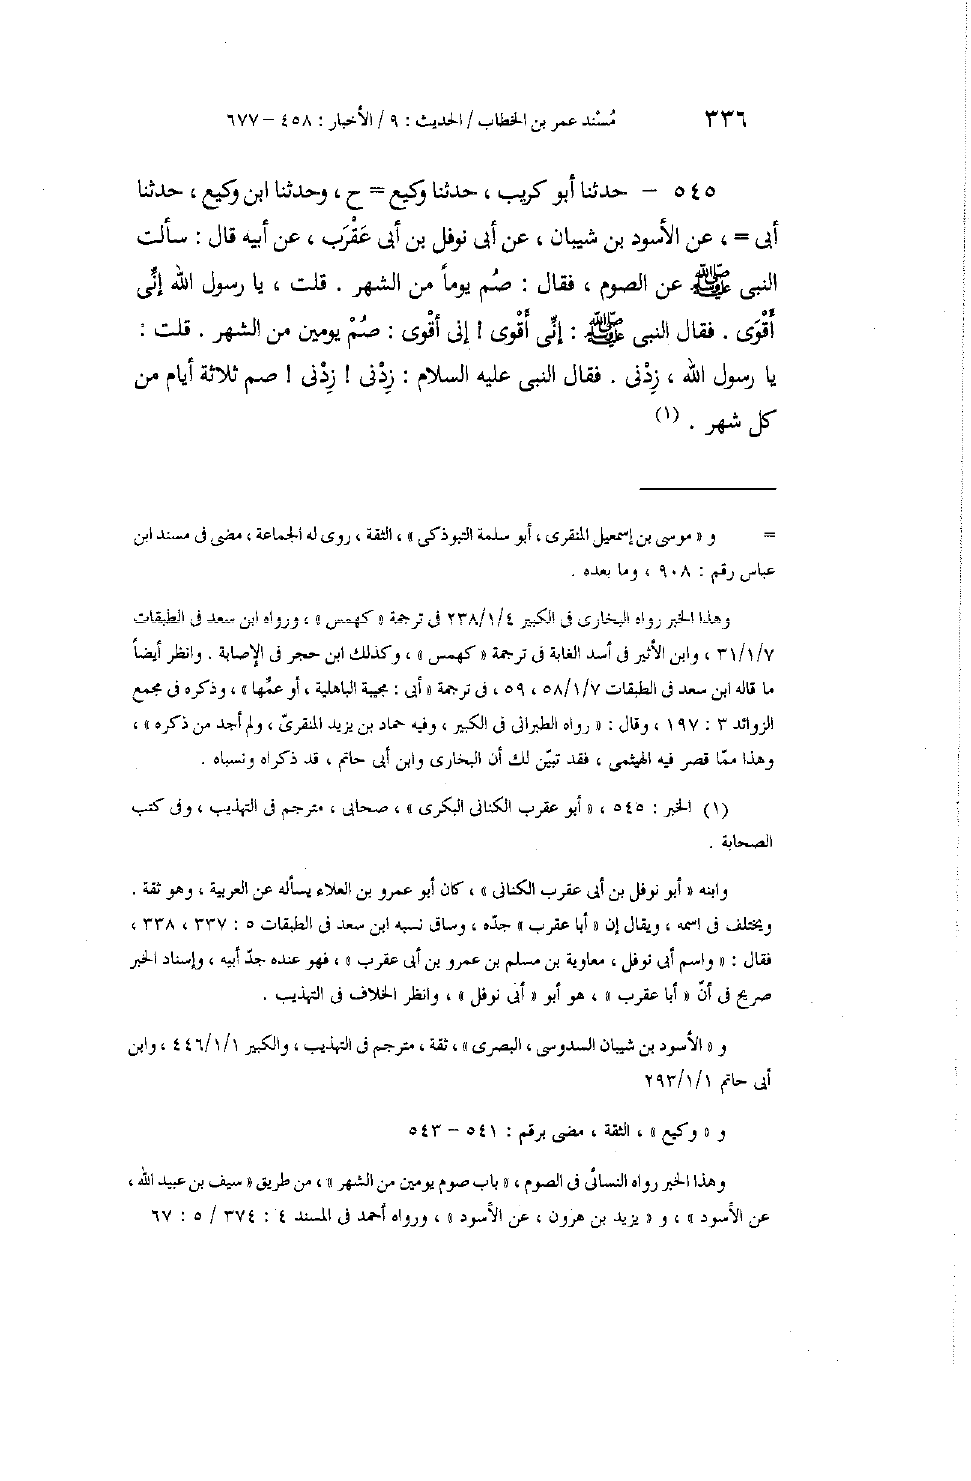 ٣٣٦ مُسْند عمر بن الخطاب / الحديث : ٩ / الأخبار : ٤٥٨ – ٦٧٧
٥٤٥ – حدثنا أبو كريب ، حدثنا وكيع = ح ، وحدثنا ابن وكيع ، حدثنا
أبى = ، عن الأسود بن شيبان ، عن أبى نوفل بن أبى عَقْرَب ، عن أبيه قال : سألت
النبى ﷺ عن الصوم ، فقال : صُم يوماً من الشهر . قلت ، يا رسول الله إنِّى
أَقْوَى . فقال النبى ﷺ : إنِّى أَقْوى ! إنى أقْوى : صُمْ يومين من الشهر . قلت :
يا رسول الله ، زِدْنى . فقال النبى عليه السلام : زِدْنى ! زِدْنى ! صم ثلاثة أيام من
كل شهر . (١)
= و « موسى بن إسمعيل المنقرى ، أبو سلمة التبوذكى » ، الثقة ، روى له الجماعة ، مضى فى مسند ابن
عباس رقم : ٩٠٨ ، وما بعده .
وهذا الخبر رواه البخارى فى الكبير ٢٣٨/١/٤ فى ترجمة « كهمس » ، ورواه ابن سعد فى الطبقات
٣١/١/٧ ، وابن الأثير فى أسد الغابة فى ترجمة « كهمس » ، وكذلك ابن حجر فى الإصابة . وانظر أيضاً
ما قاله ابن سعد فى الطبقات ٥٨/١/٧ ، ٥٩ ، فى ترجمة « أبى : مجيبة الباهلية ، أو عمّها » ، وذكره فى مجمع
الزوائد ٣ : ١٩٧ ، وقال : « رواه الطبرانى فى الكبير ، وفيه حماد بن يزيد المنقرىّ ، ولم أجد من ذكره » ،
وهذا ممّا قصر فيه الهيثمى ، فقد تبيّن لك أن البخارى وابن أبى حاتم ، قد ذكراه ونسباه .
(١) الخبر : ٥٤٥ ، « أبو عقرب الكنانى البكرى » ، صحابى ، مترجم فى التهذيب ، وفى كتب
الصحابة .
وابنه « أبو نوفل بن أبى عقرب الكنانى » ، كان أبو عمرو بن العلاء يسأله عن العربية ، وهو ثقة .
ويختلف فى اسمه ، ويقال إن « أبا عقرب » جدّه ، وساق نسبه ابن سعد فى الطبقات ٥ : ٣٣٧ ، ٣٣٨ ،
فقال : « واسم أبى نوفل ، معاوية بن مسلم بن عمرو بن أبى عقرب » ، فهو عنده جدّ أبيه ، وإسناد الخبر
صريح فى أنّ « أبا عقرب » ، هو أبو « أبى نوفل » ، وانظر الخلاف فى التهذيب .
و « الأسود بن شيبان السدوسى ، البصرى » ، ثقة ، مترجم فى التهذيب ، والكبير ٤٤٦/١/١ ، وابن
أبى حاتم ٢٩٣/١/١
و « وكيع » ، الثقة ، مضى برقم : ٥٤١ – ٥٤٣
وهذا الخبر رواه النسائى فى الصوم ، « باب صوم يومين من الشهر » ، من طريق « سيف بن عبيد الله ،
عن الأسود » ، و « يزيد بن هرون ، عن الأسود » ، ورواه أحمد فى المسند ٤ : ٣٧٤ / ٥ : ٦٧